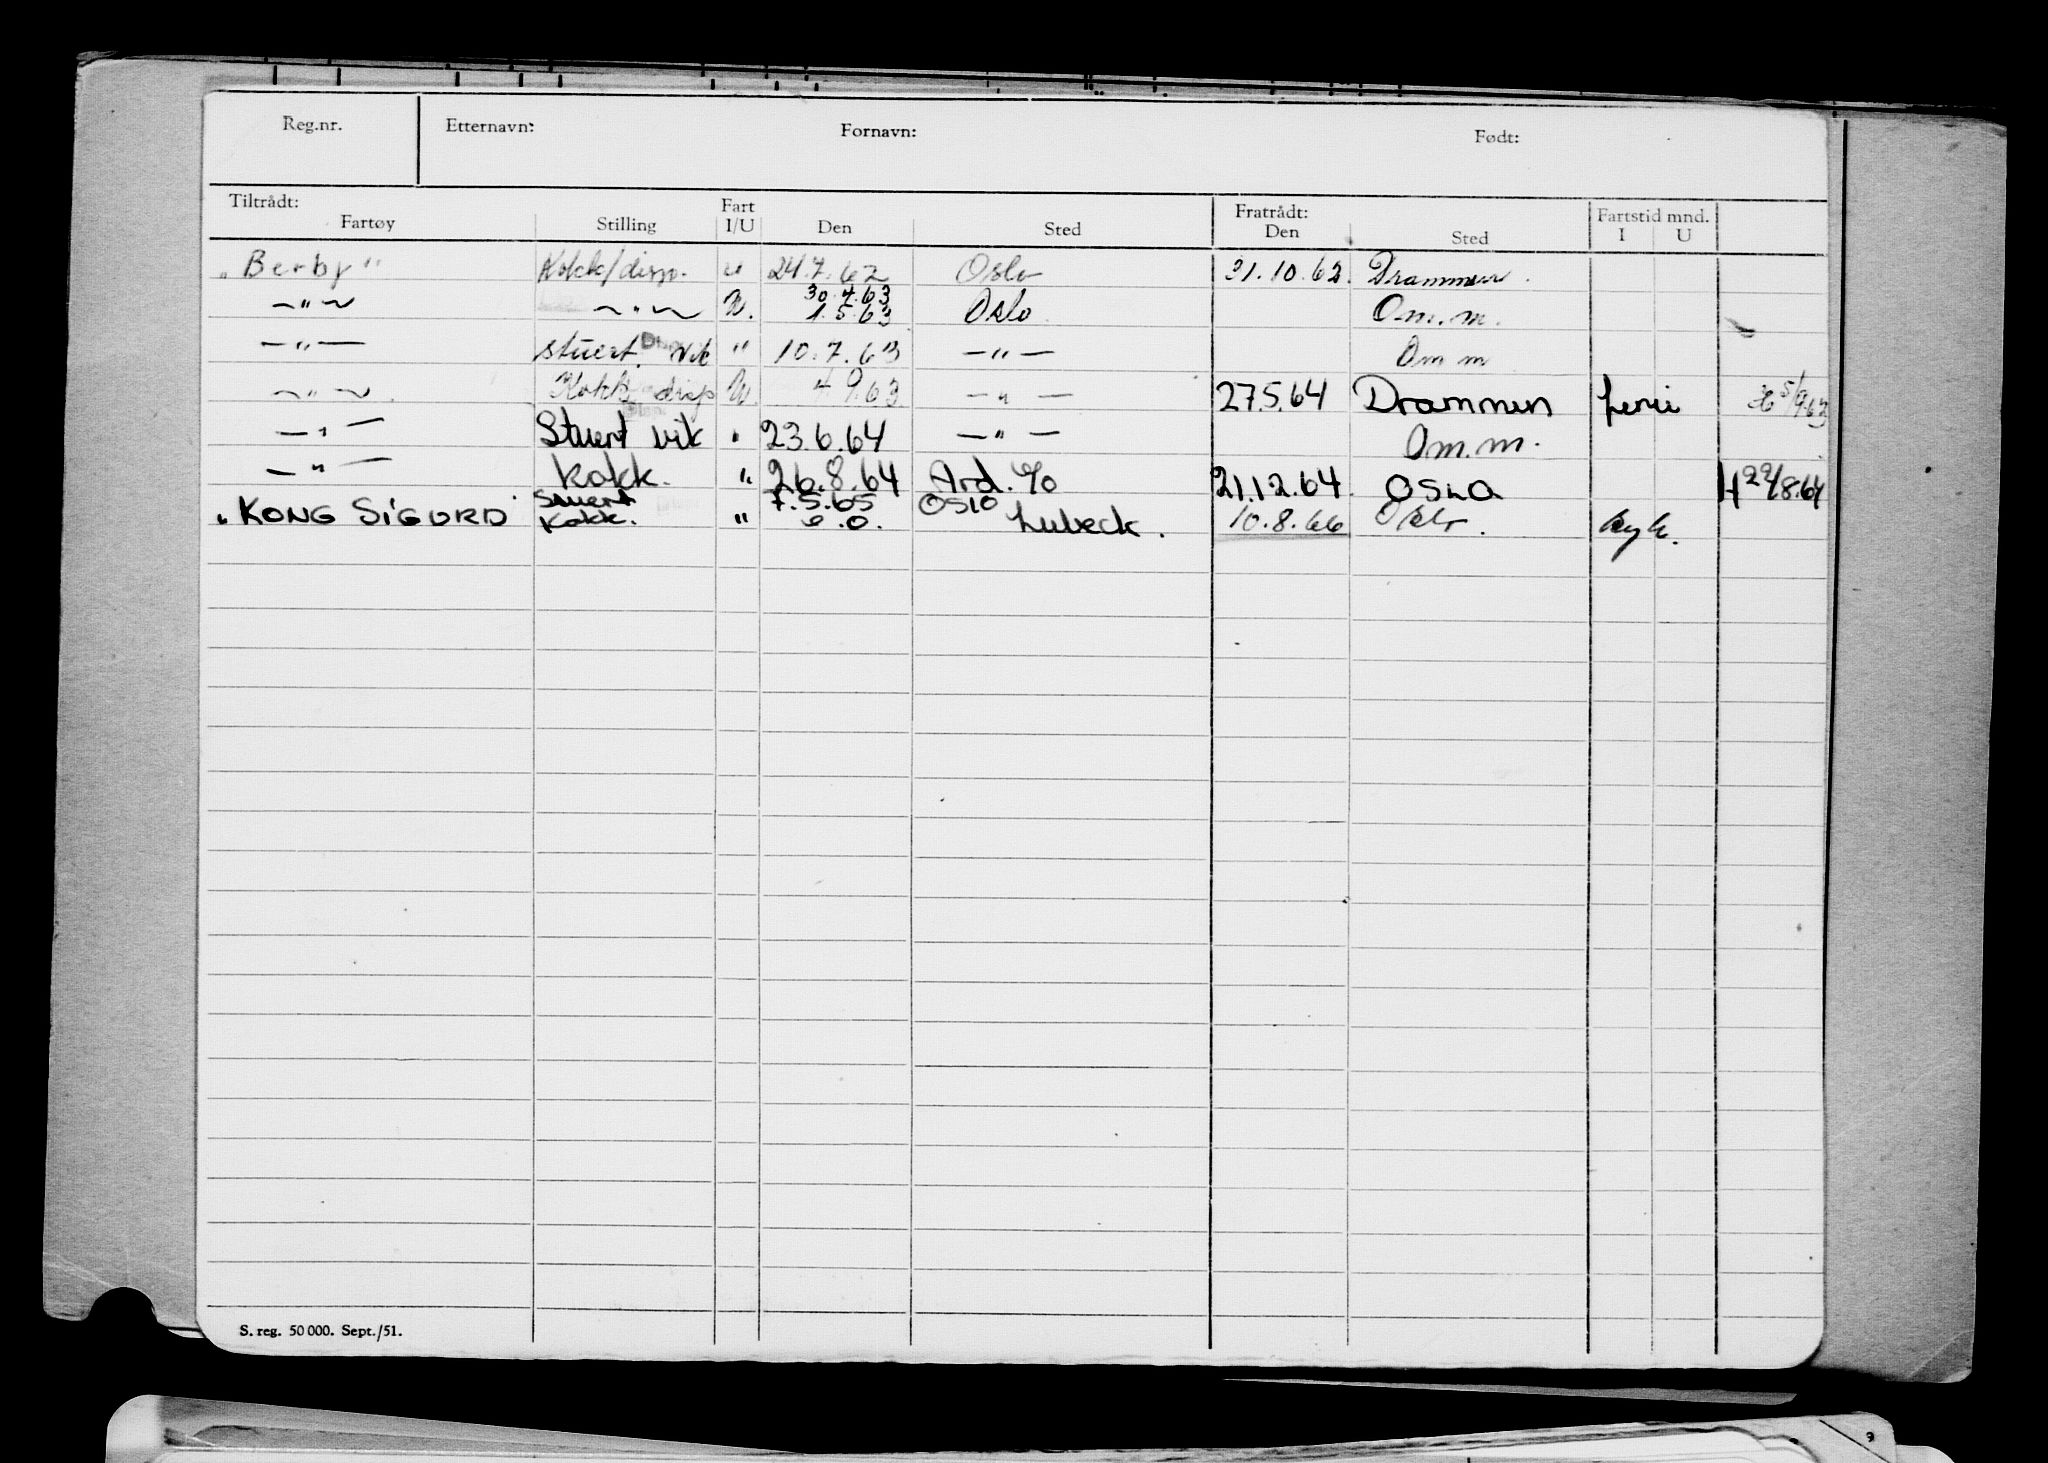 Reg.nr. Etternavn: Fornavn: Født:
Tiltrådt: Fratrådt: Fartstid mnd.
Fartøy Stilling Fart I/U Den Sted Den Sted I U
"Berby" Kokk/disp. " 24.7.62 Oslo 31.10.62. Drammen.
—"— —"— U. 30.4.63 1.5.63 Oslo Om.m.
—"— stuert. vik " 10.7.63 —"— Om m
—"— Kokk disp U. 4.9.63 —"— 27.5.64 Drammen ferie 5/9.63
—"— Stuert vik " 23.6.64 —"— Om.m.
—"— Kokk. " 26.8.64 Ard. 21.12.64. OSLO H 22/8.64
"KONG SIGURD" Stuert 7.5.65 OSLO
Kokk. " Lubeck. 10.8.66 Oslo. syk.
S. reg. 50 000. Sept./51.
9